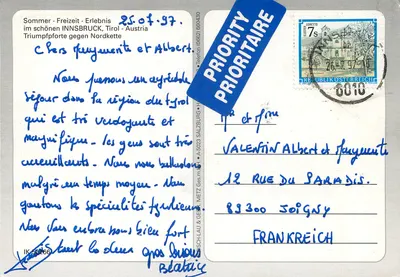 Sommer - Freizeit - Erlebnis
im schönen INNSBRUCK, Tirol - Austria
Triumpfpforte gegen Nordkette
25.07.97.
Chers Marguerite et Albert.
Nous passons un agréable
séjour dans la région du tyrol
qui est très verdoyante et
magnifique. les gens sont très
accueillants. Nous nous balladons
malgré un temps moyen. Nous
goutons les spécialités tyroliennes.
Nous vous embrassons bien fort
tout les deux gros bisous
Béatrice
PRIORITY
PRIORITAIRE
7s
REPUBLIK ÖSTERREICH
6010
Mr et Mme
VALENTIN Albert et Marguerite
12 RUE DU PARADIS.
89300 JOIGNY
FRANKREICH